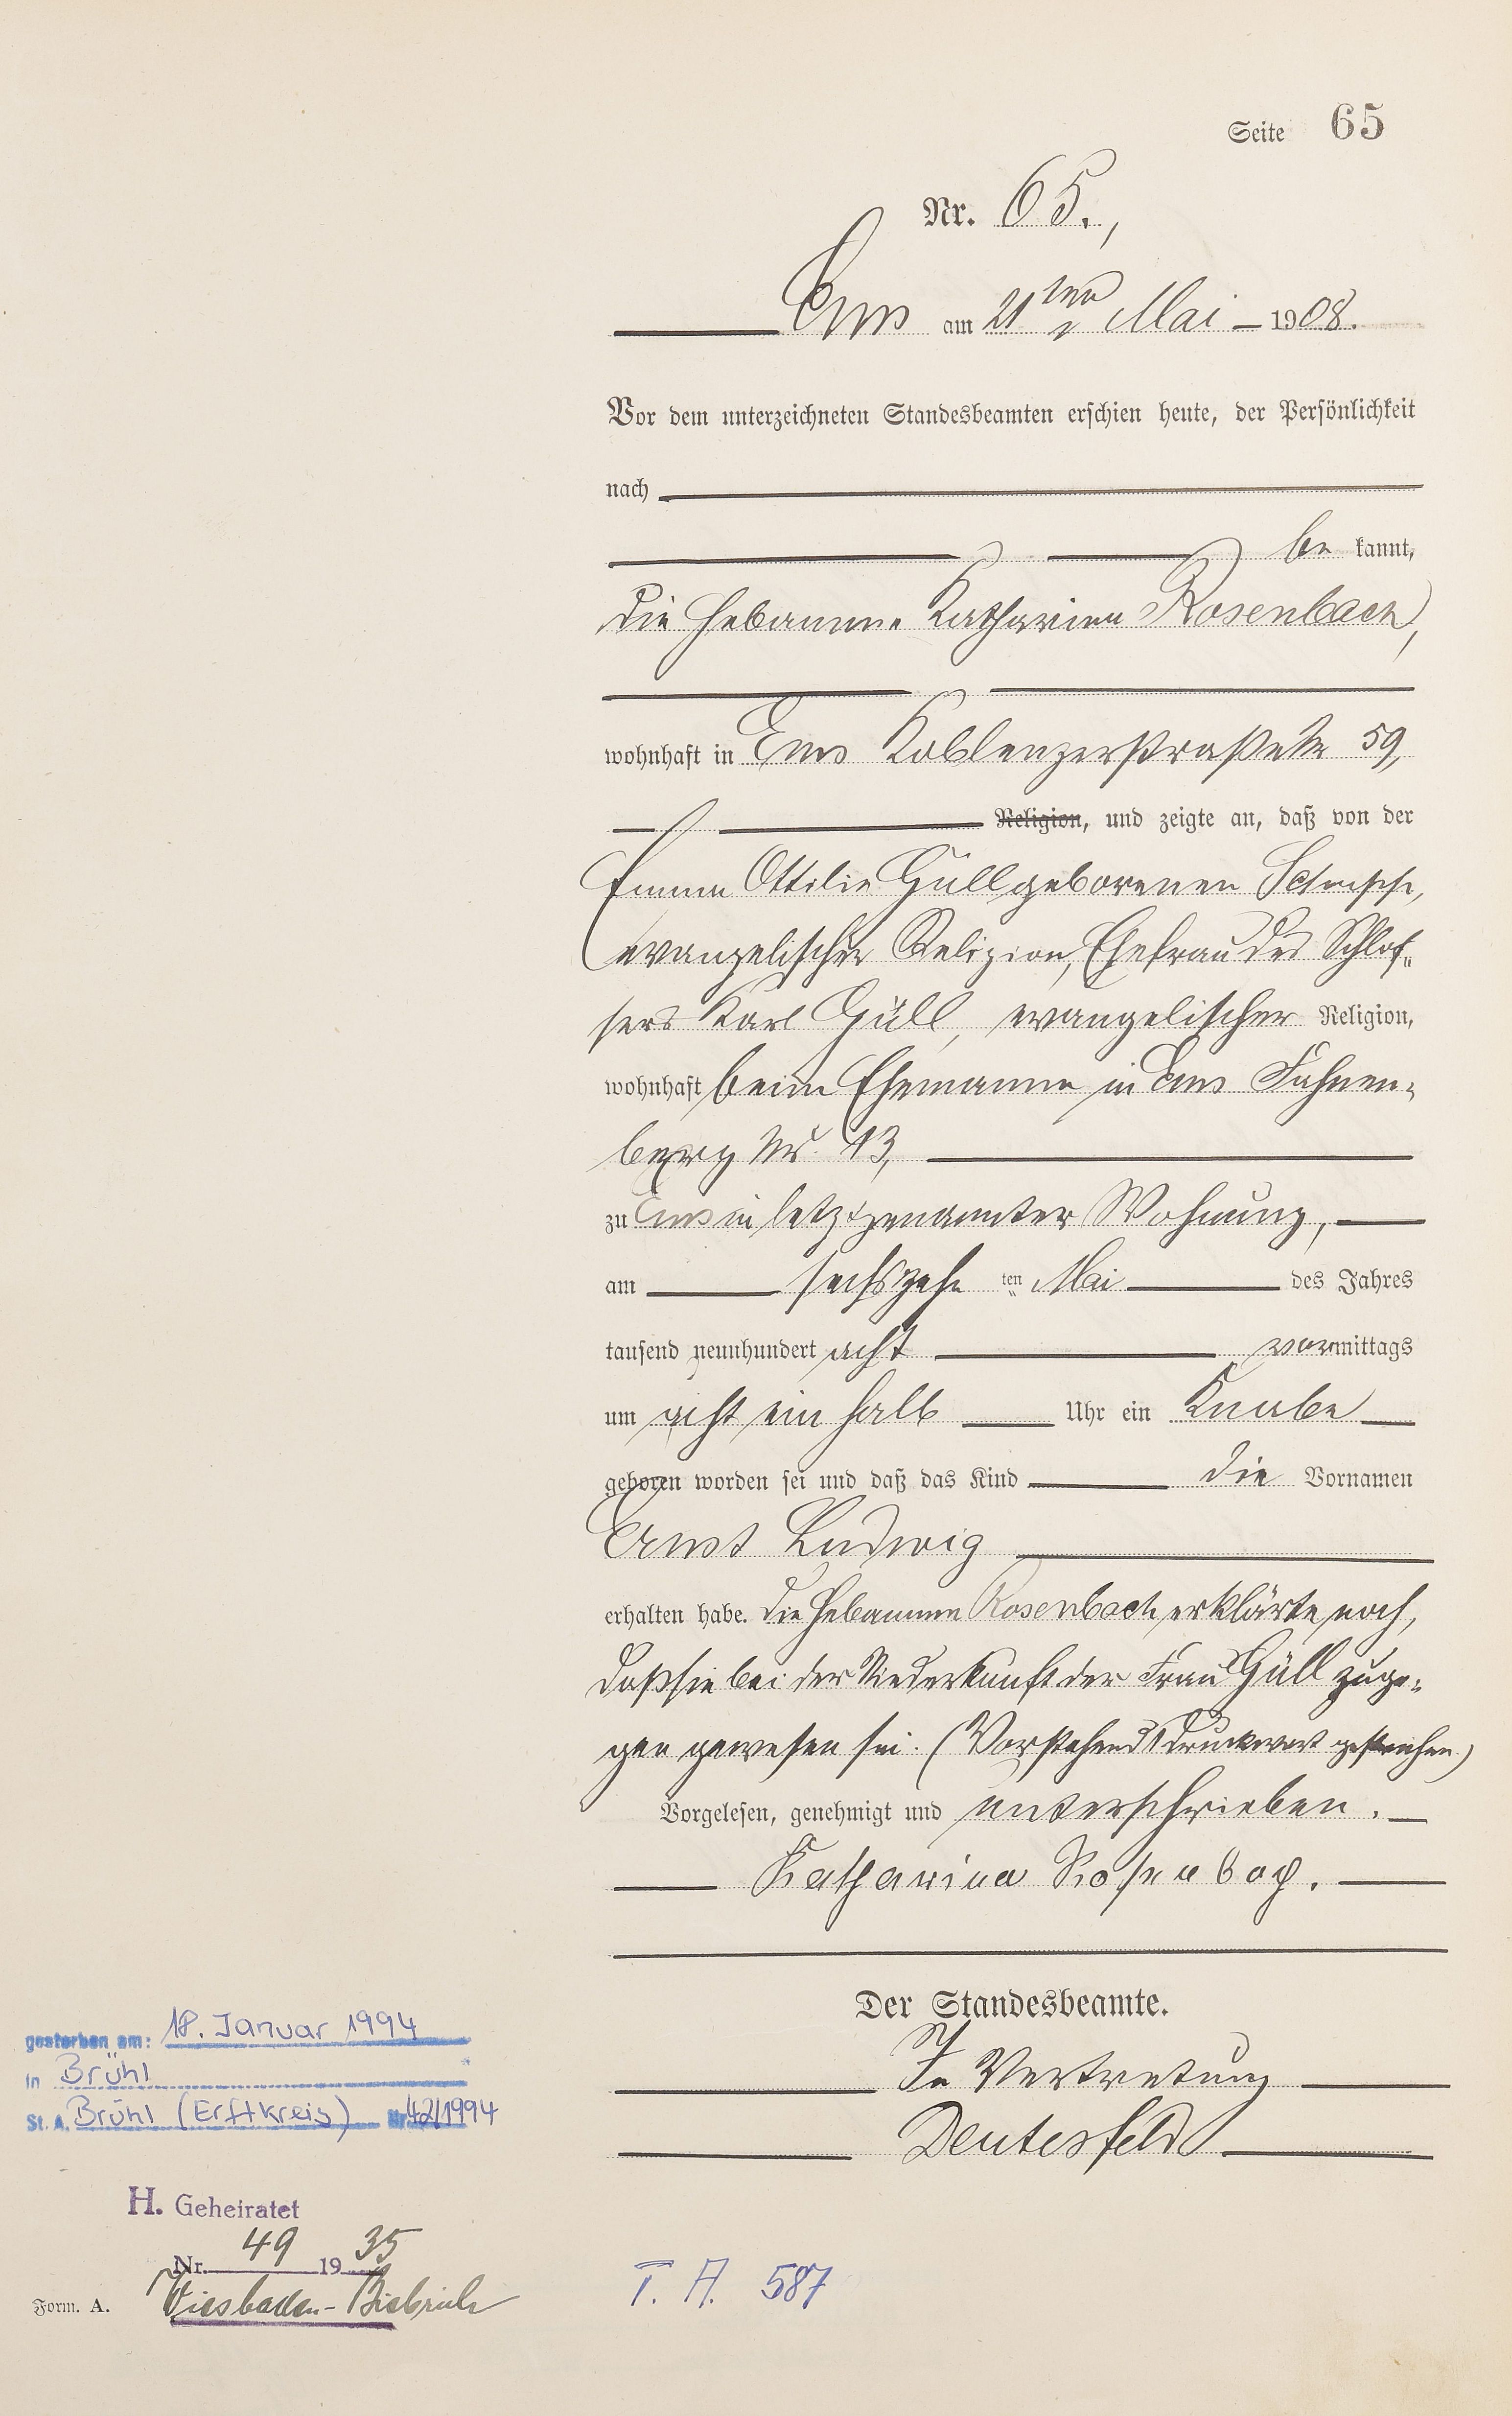 Seite 65
Nr. 65.,
Ems am 21ten Mai 1908.
Vor dem unterzeichneten Standesbeamten erschien heute, der Persönlichkeit
nach
be kannt,
die Hebamme Katharina Rosenbach,
wohnhaft in Ems Koblenzerstraße Nr 59,
Religion, und zeigte an, daß von der
Emma Ottilie Güll geborenen
evangelischer Religion, Ehefrau des Schlos-
sers Karl Güll, evangelischer Religion,
wohnhaft beim Ehemanne in Ems Fahnen-
berg Nr. 13,
zu Ems in letztgenannter Wohnung,
am sechszehn ten Mai des Jahres
tausend neunhundert acht vormittags
um acht ein halb Uhr ein Knabe
geboren worden sei und daß das Kind die Vornamen
Ernst Ludwig
erhalten habe. Die Hebamme Rosenbach erklärte noch,
daß sie bei der Niederkunft der Frau Güll zuge-
gen gewesen sei. (Vorstehend 1 Druckwort gestrichen.)
Vorgelesen, genehmigt und unterschrieben.
Katharina Rosenbach.
Der Standesbeamte.
In Vertretung
Deutesfeld
gestorben am: 18. Januar 1994
in Brühl
St. A. Brühl (Erftkreis) Nr. 42/1994
H. Geheiratet
Nr. 49 1935
Wiesbaden-Biebrich
Form. A.
T. A. 587